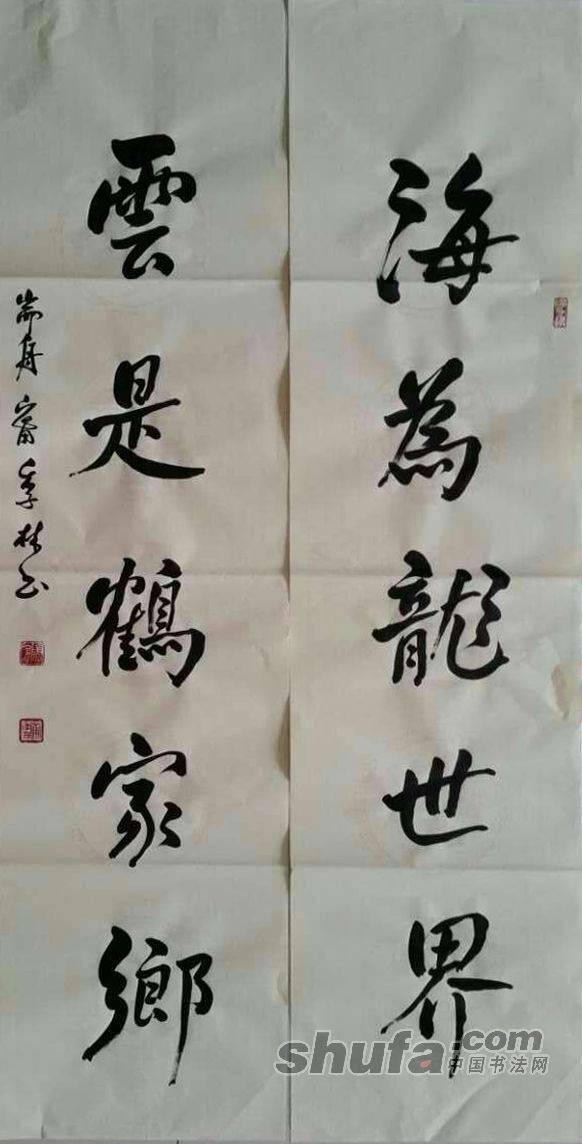 海為龍世界
雲是鶴家鄉
季林书
shufa.com
中国书法网